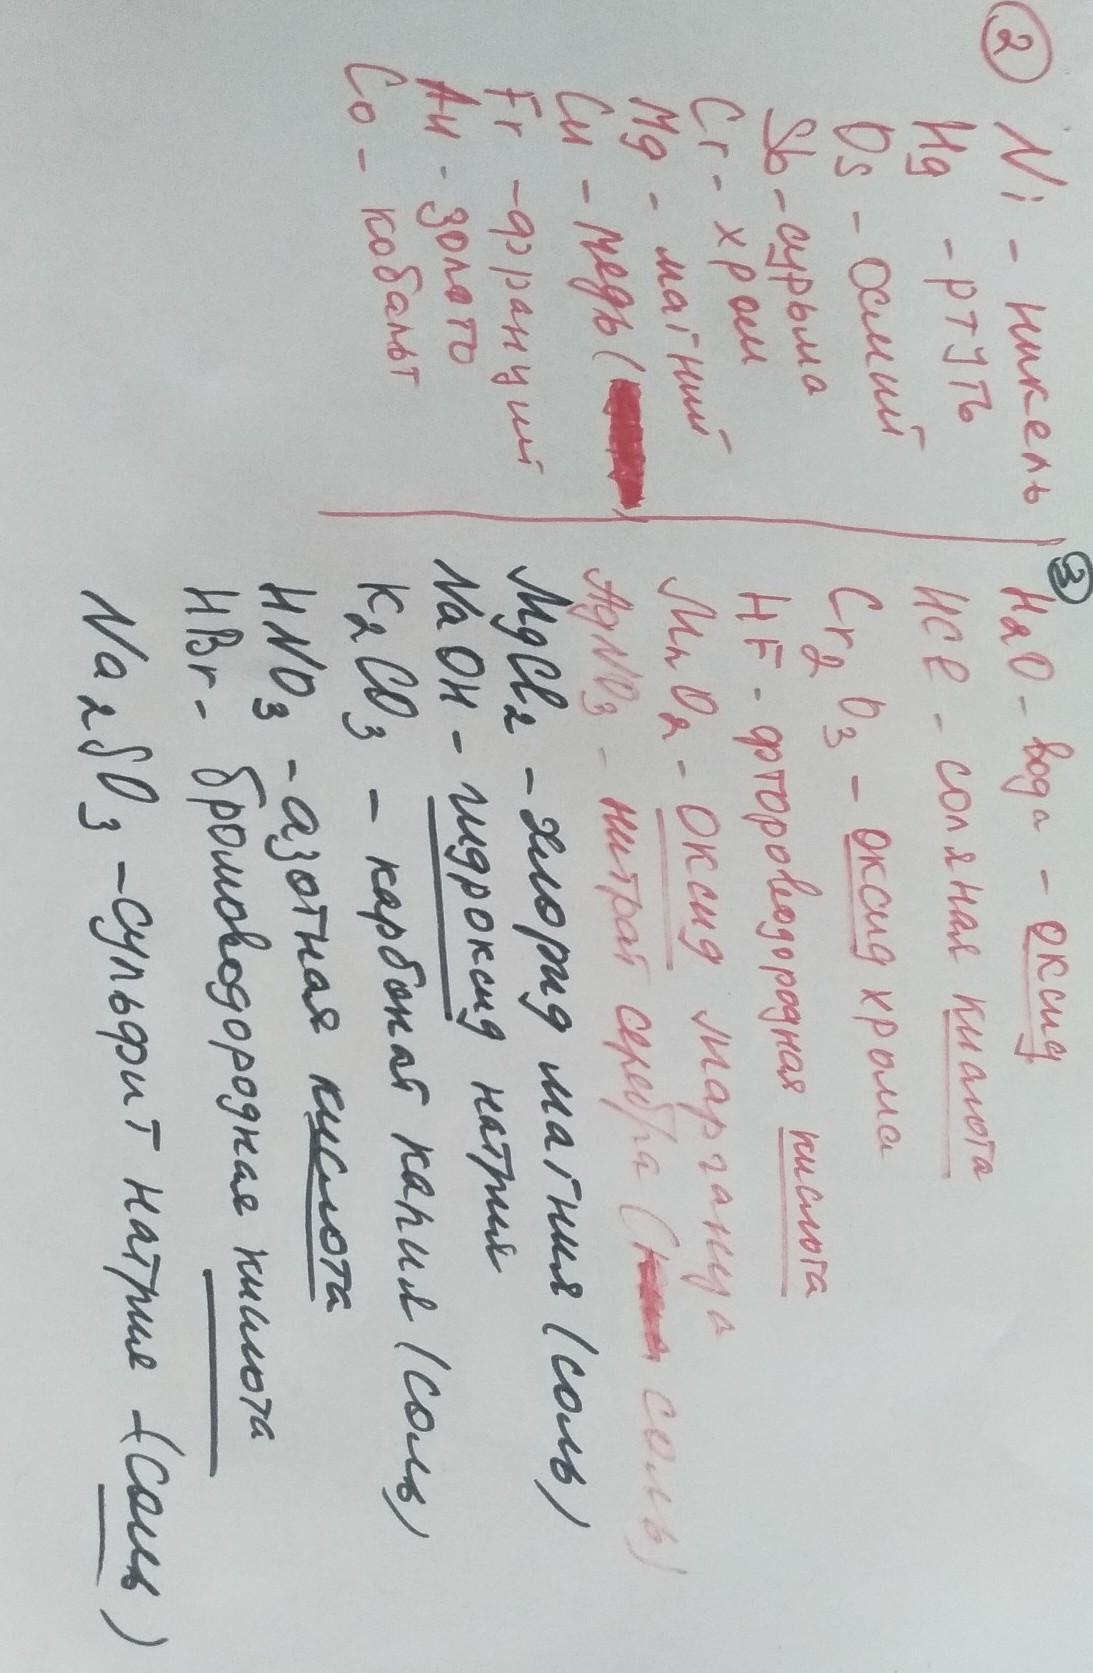 2
Ni - никель
Hg - ртуть
Os - осмий
Sb - сурьма
Cr - хром
Mg - магний
Cu - медь (
Fr - франций
Au - золото
Co - кобальт
3
H2O - вода - оксид
HCl - соляная кислота
Cr2O3 - оксид хрома
HF - фтороводородная кислота
MnO2 - оксид марганца
AgNO3 - нитрат серебра (соль)
MgCl2 - хлорид магния (соль)
NaOH - гидроксид натрия
K2CO3 - карбонат калия (соль)
HNO3 - азотная кислота
HBr - бромоводородная кислота
Na2SO3 - сульфит натрия - (соль)